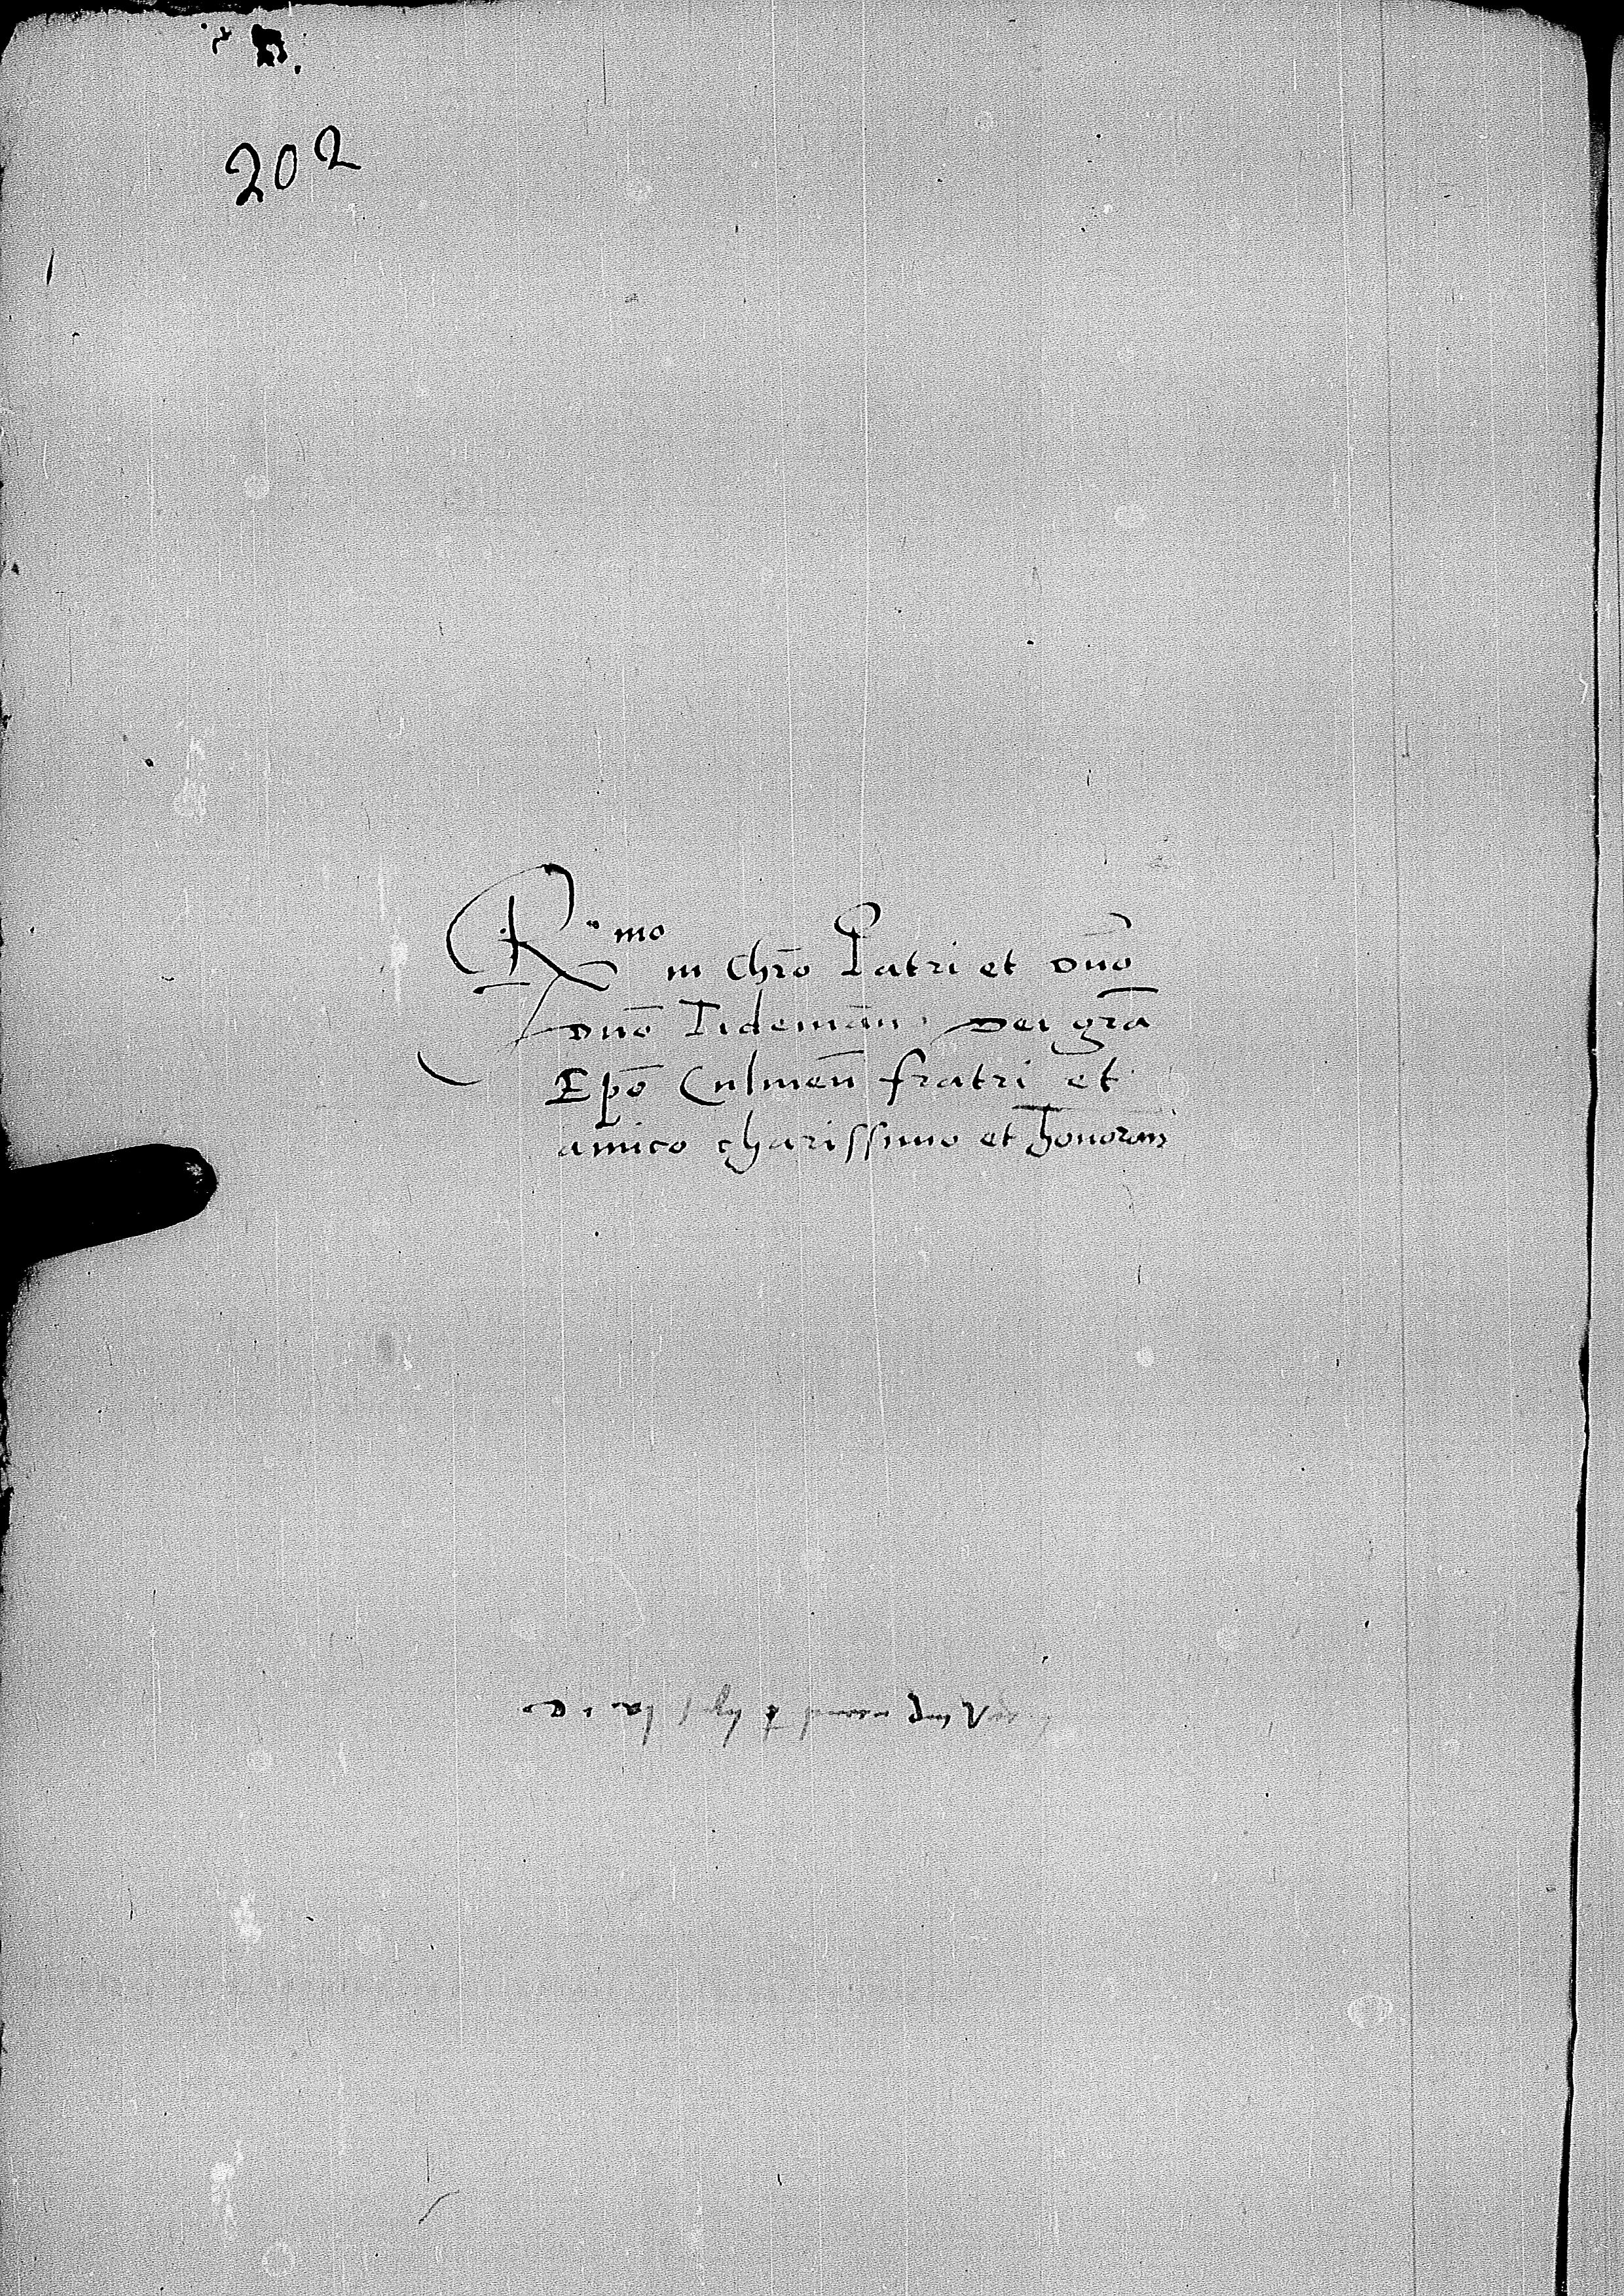 202
R mo
in Chro Patri et dno
dno Tidemann Dei gra
Epo Culmen fratri et
amico charissimo et honoran